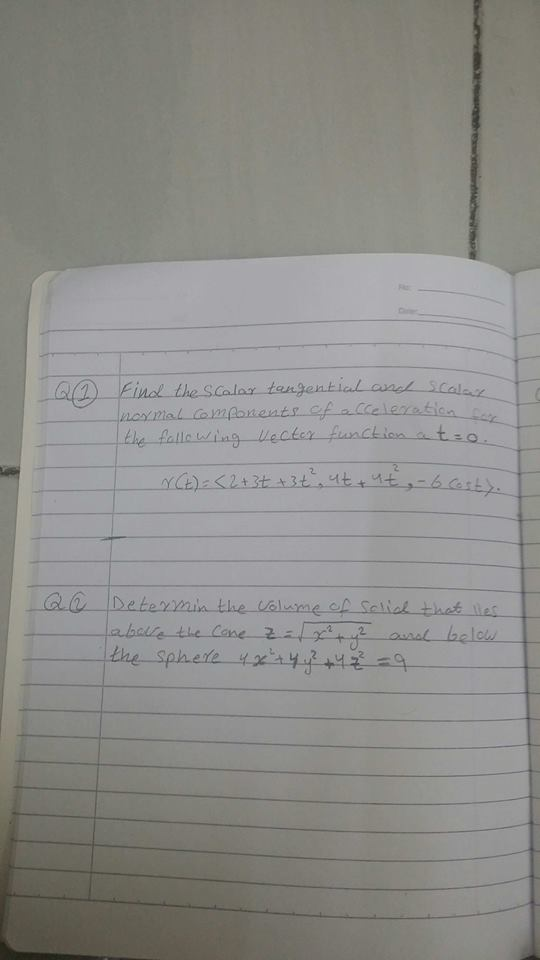 No:
Date:
Q① Find the scalar tangential and scalar
normal components of acceleration for
the following vector function at t=0.
r(t)=<2+3t+3t², 4t+4t², -6 cost>.
Q② Determin the volume of solid that lies
above the cone z=√x²+y² and below
the sphere 4x²+4y²+4z²=9